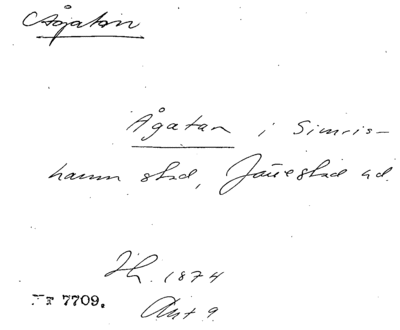 Ågatan
Ågatan i Simris-
hamn stad, Järrestad hd.
Jh. 1874
Akt 9
Nr 7709.